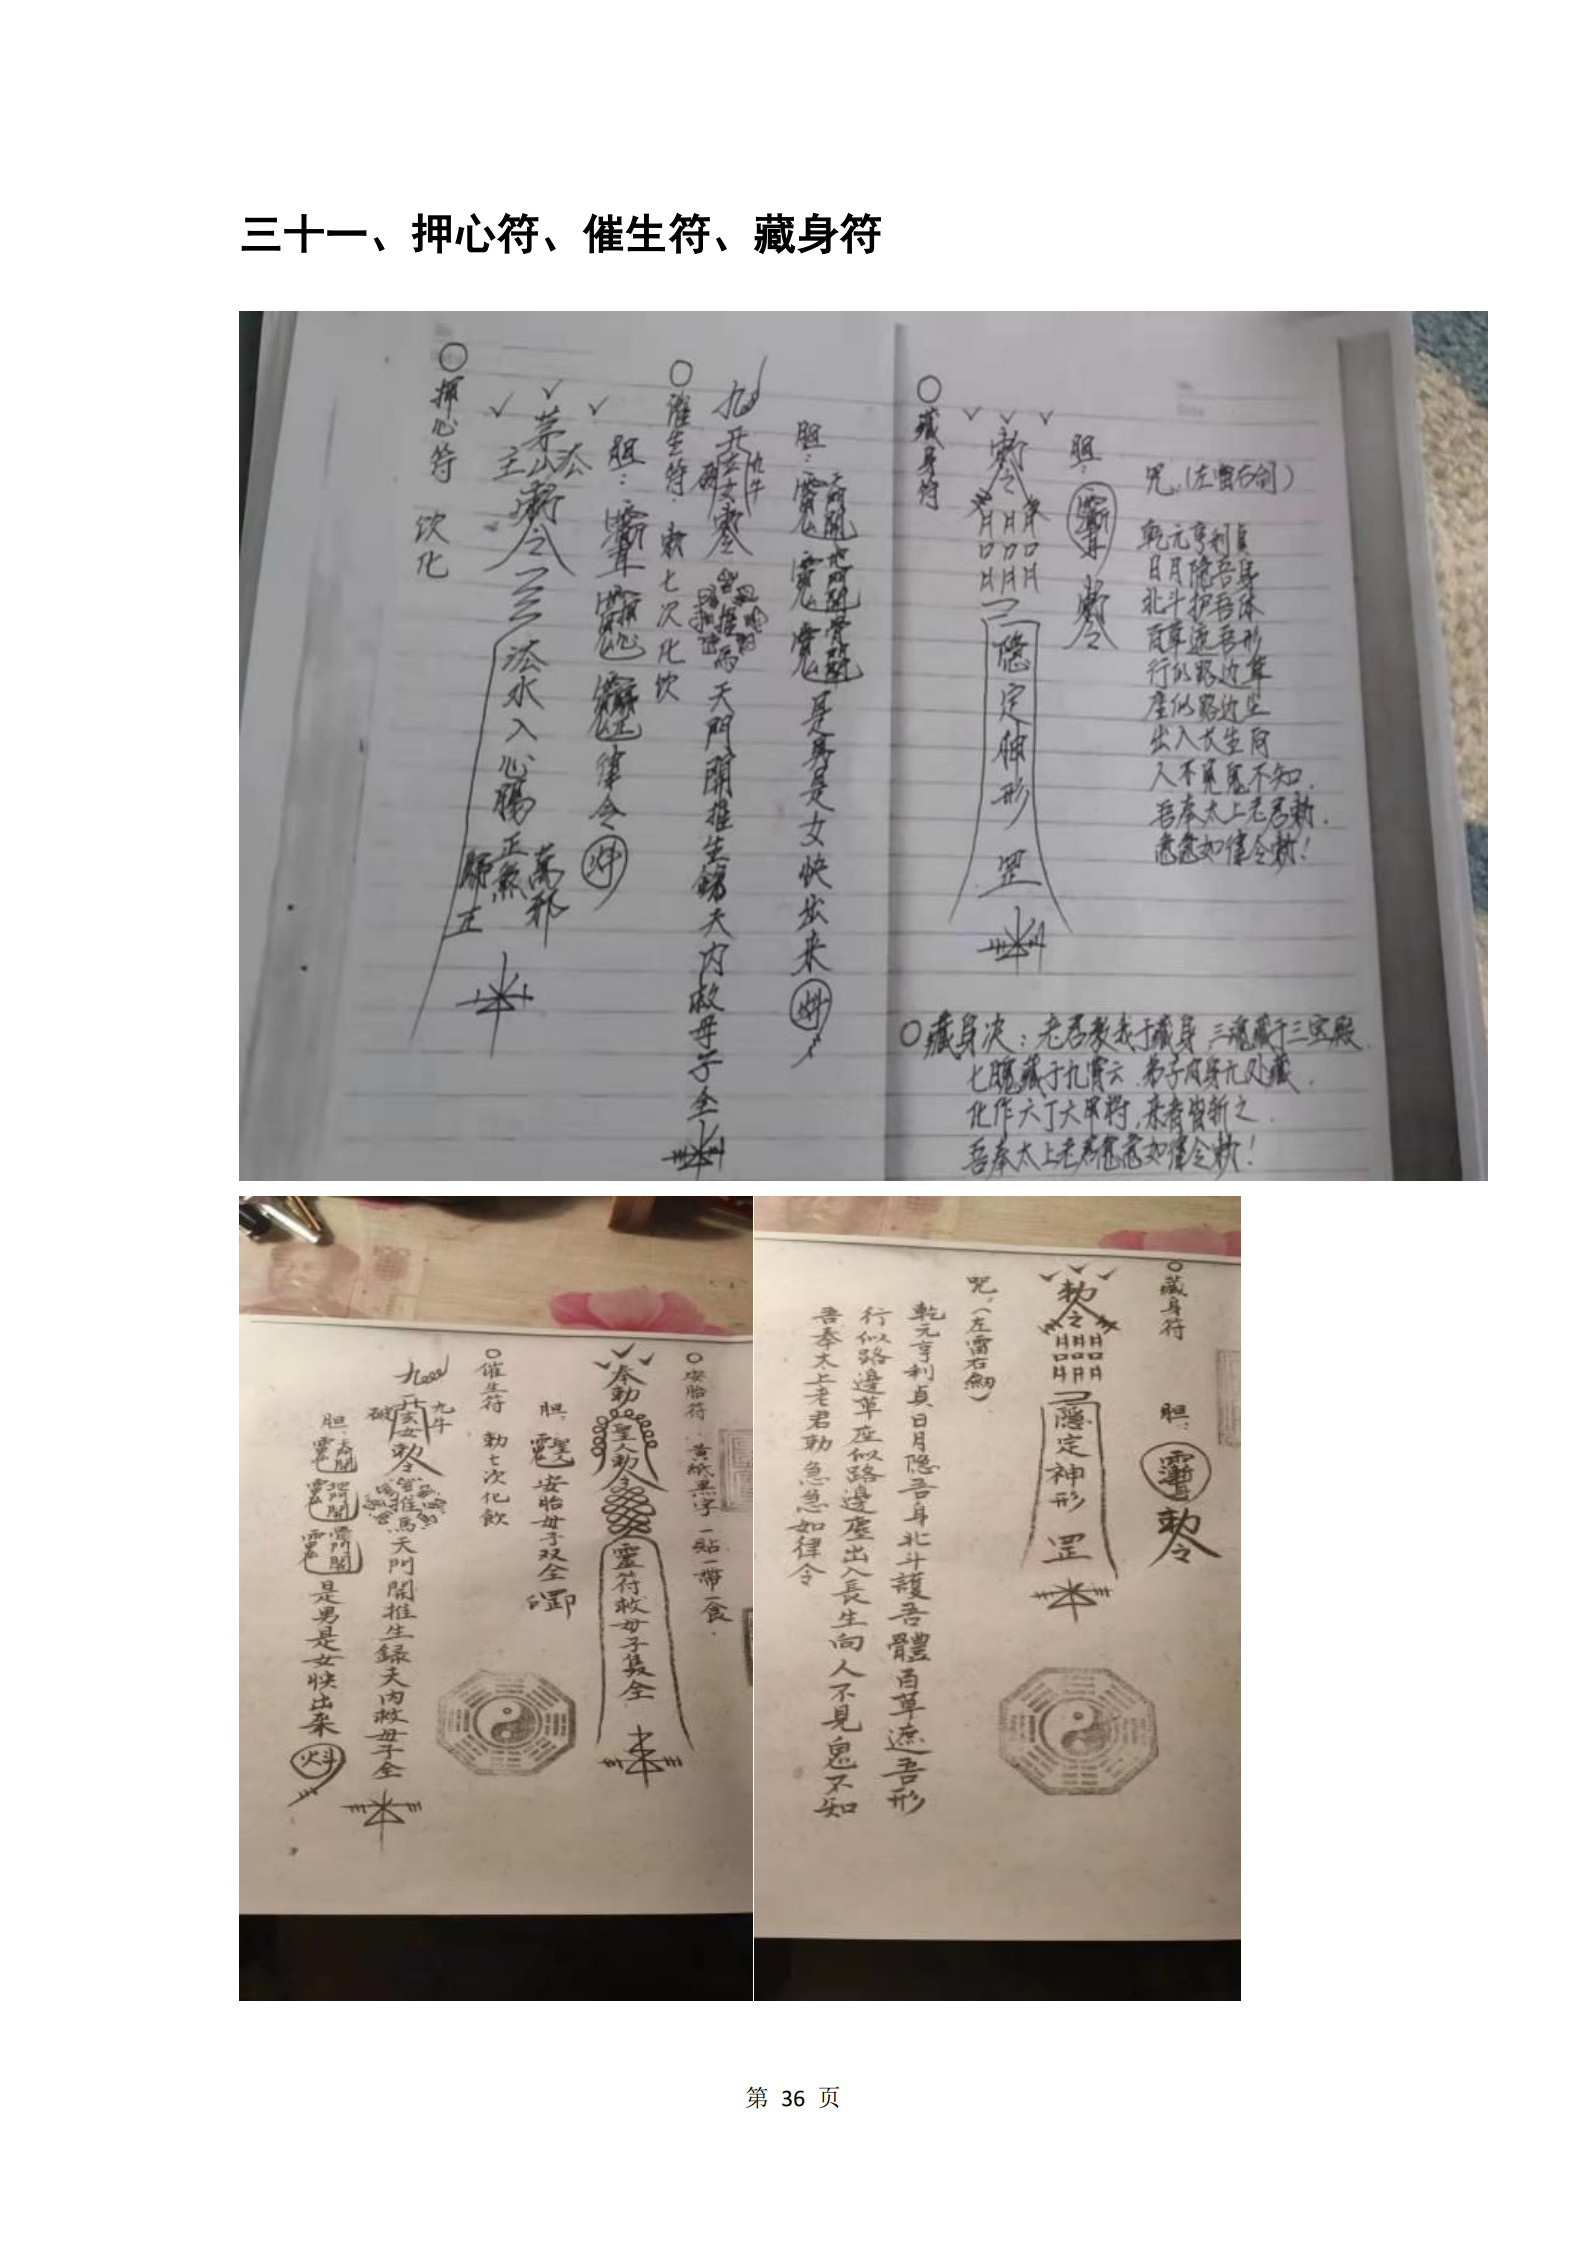 三十一、押心符、催生符、藏身符
○押心符 饮化
茅山法主
敕令
法水入心肠
正煞
万邪
归正
胆：
律令
○催生符：敕七次化饮
九
九牛
破
玄女
敕令
推马
天門開推生錄天内救母子全
胆：
天門開
地門開
骨門開
是男是女快出来
○藏身符
敕令
隐定神形
罡
胆：
敕令
咒，(左雷右剑)
乾元亨利貞
日月隐吾身
北斗护吾体
百草遮吾形
行似路边草
座似路边尘
出入长生向
人不見鬼不知.
吾奉太上老君勅.
急急如律令勅!
○藏身决：老君教我于藏身.三魂藏于三宝殿.
七魄藏于九霄云.弟子肉身九处藏.
化作六丁六甲将,来者皆斩之.
吾奉太上老君急急如律令勅!
○安胎符.黃紙黑字一贴一帶一食.
奉勅
聖人勅令
靈符救母子隻全
胆.
安胎母子双全
○催生符 勅七次化飲
九
九牛
破
玄女
勅令
推馬
天門開推生録天内救母子全
胆.
天門開
地門開
骨門開
是男是女快出来
○藏身符
胆.
勅令
勅令
隱定神形
罡
咒,(左雷右劒)
乾元亨利貞日月隐吾身北斗護吾體百草遮吾形
行似路邊草座似路邊塵出入長生向人不見鬼不知
吾奉太上老君勅急急如律令
第 36 页